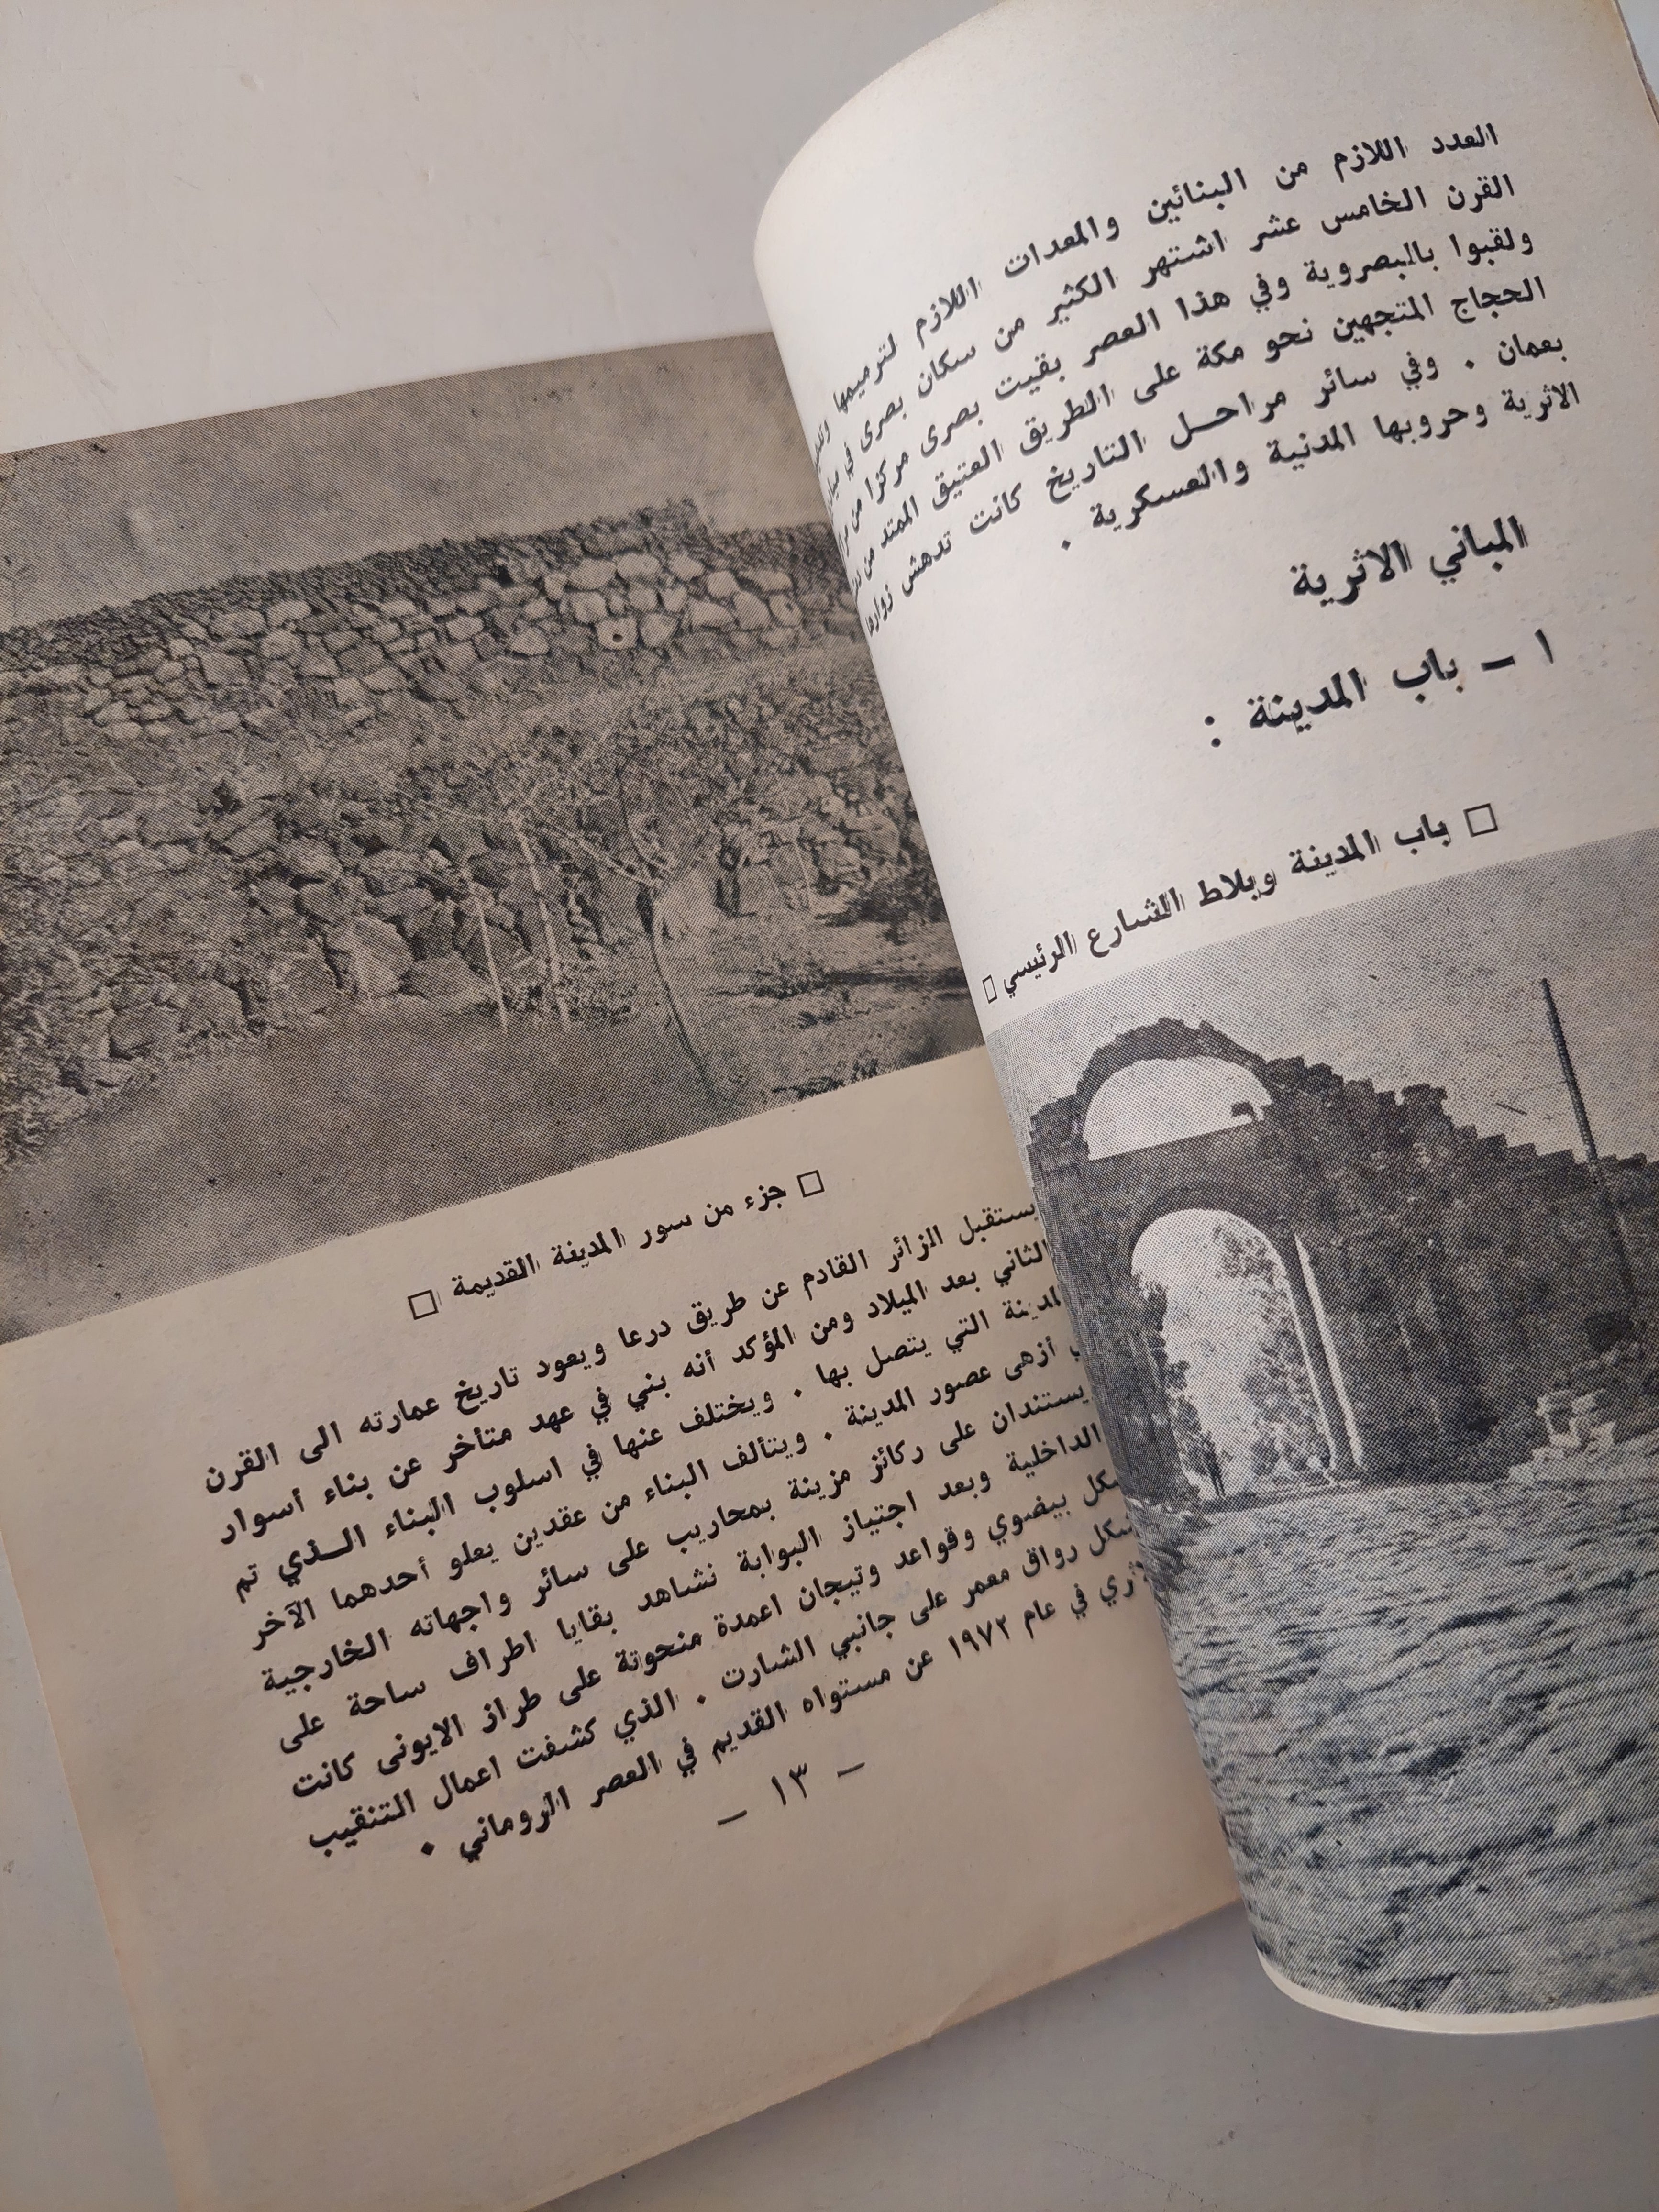 العدد اللازم من البنائين والمعدات اللازم لترميمها
القرن الخامس عشر اشتهر الكثير من سكان بصرى في
ولقبوا بالبصروية وفي هذا العصر بقيت بصرى مركزا من
الحجاج المتجهين نحو مكة على الطريق العتيق الممتد من
بعمان . وفي سائر مراحل التاريخ كانت تدهش زوارها
الاثرية وحروبها المدنية والعسكرية .
المباني الاثرية
١ – باب المدينة :
□ باب المدينة وبلاط الشارع الرئيسي □
□ جزء من سور المدينة القديمة □
يستقبل الزائر القادم عن طريق درعا ويعود تاريخ عمارته الى القرن
الثاني بعد الميلاد ومن المؤكد أنه بني في عهد متأخر عن بناء أسوار
المدينة التي يتصل بها . ويختلف عنها في اسلوب البناء الذي تم
أزهى عصور المدينة . ويتألف البناء من عقدين يعلو أحدهما الآخر
يستندان على ركائز مزينة بمحاريب على سائر واجهاته الخارجية
الداخلية وبعد اجتياز البوابة نشاهد بقايا اطراف ساحة على
شكل بيضوي وقواعد وتيجان اعمدة منحوتة على طراز الايونى كانت
شكل رواق معمر على جانبي الشارت . الذي كشفت اعمال التنقيب
في عام ١٩٧٢ عن مستواه القديم في العصر الروماني .
– ١٣ –